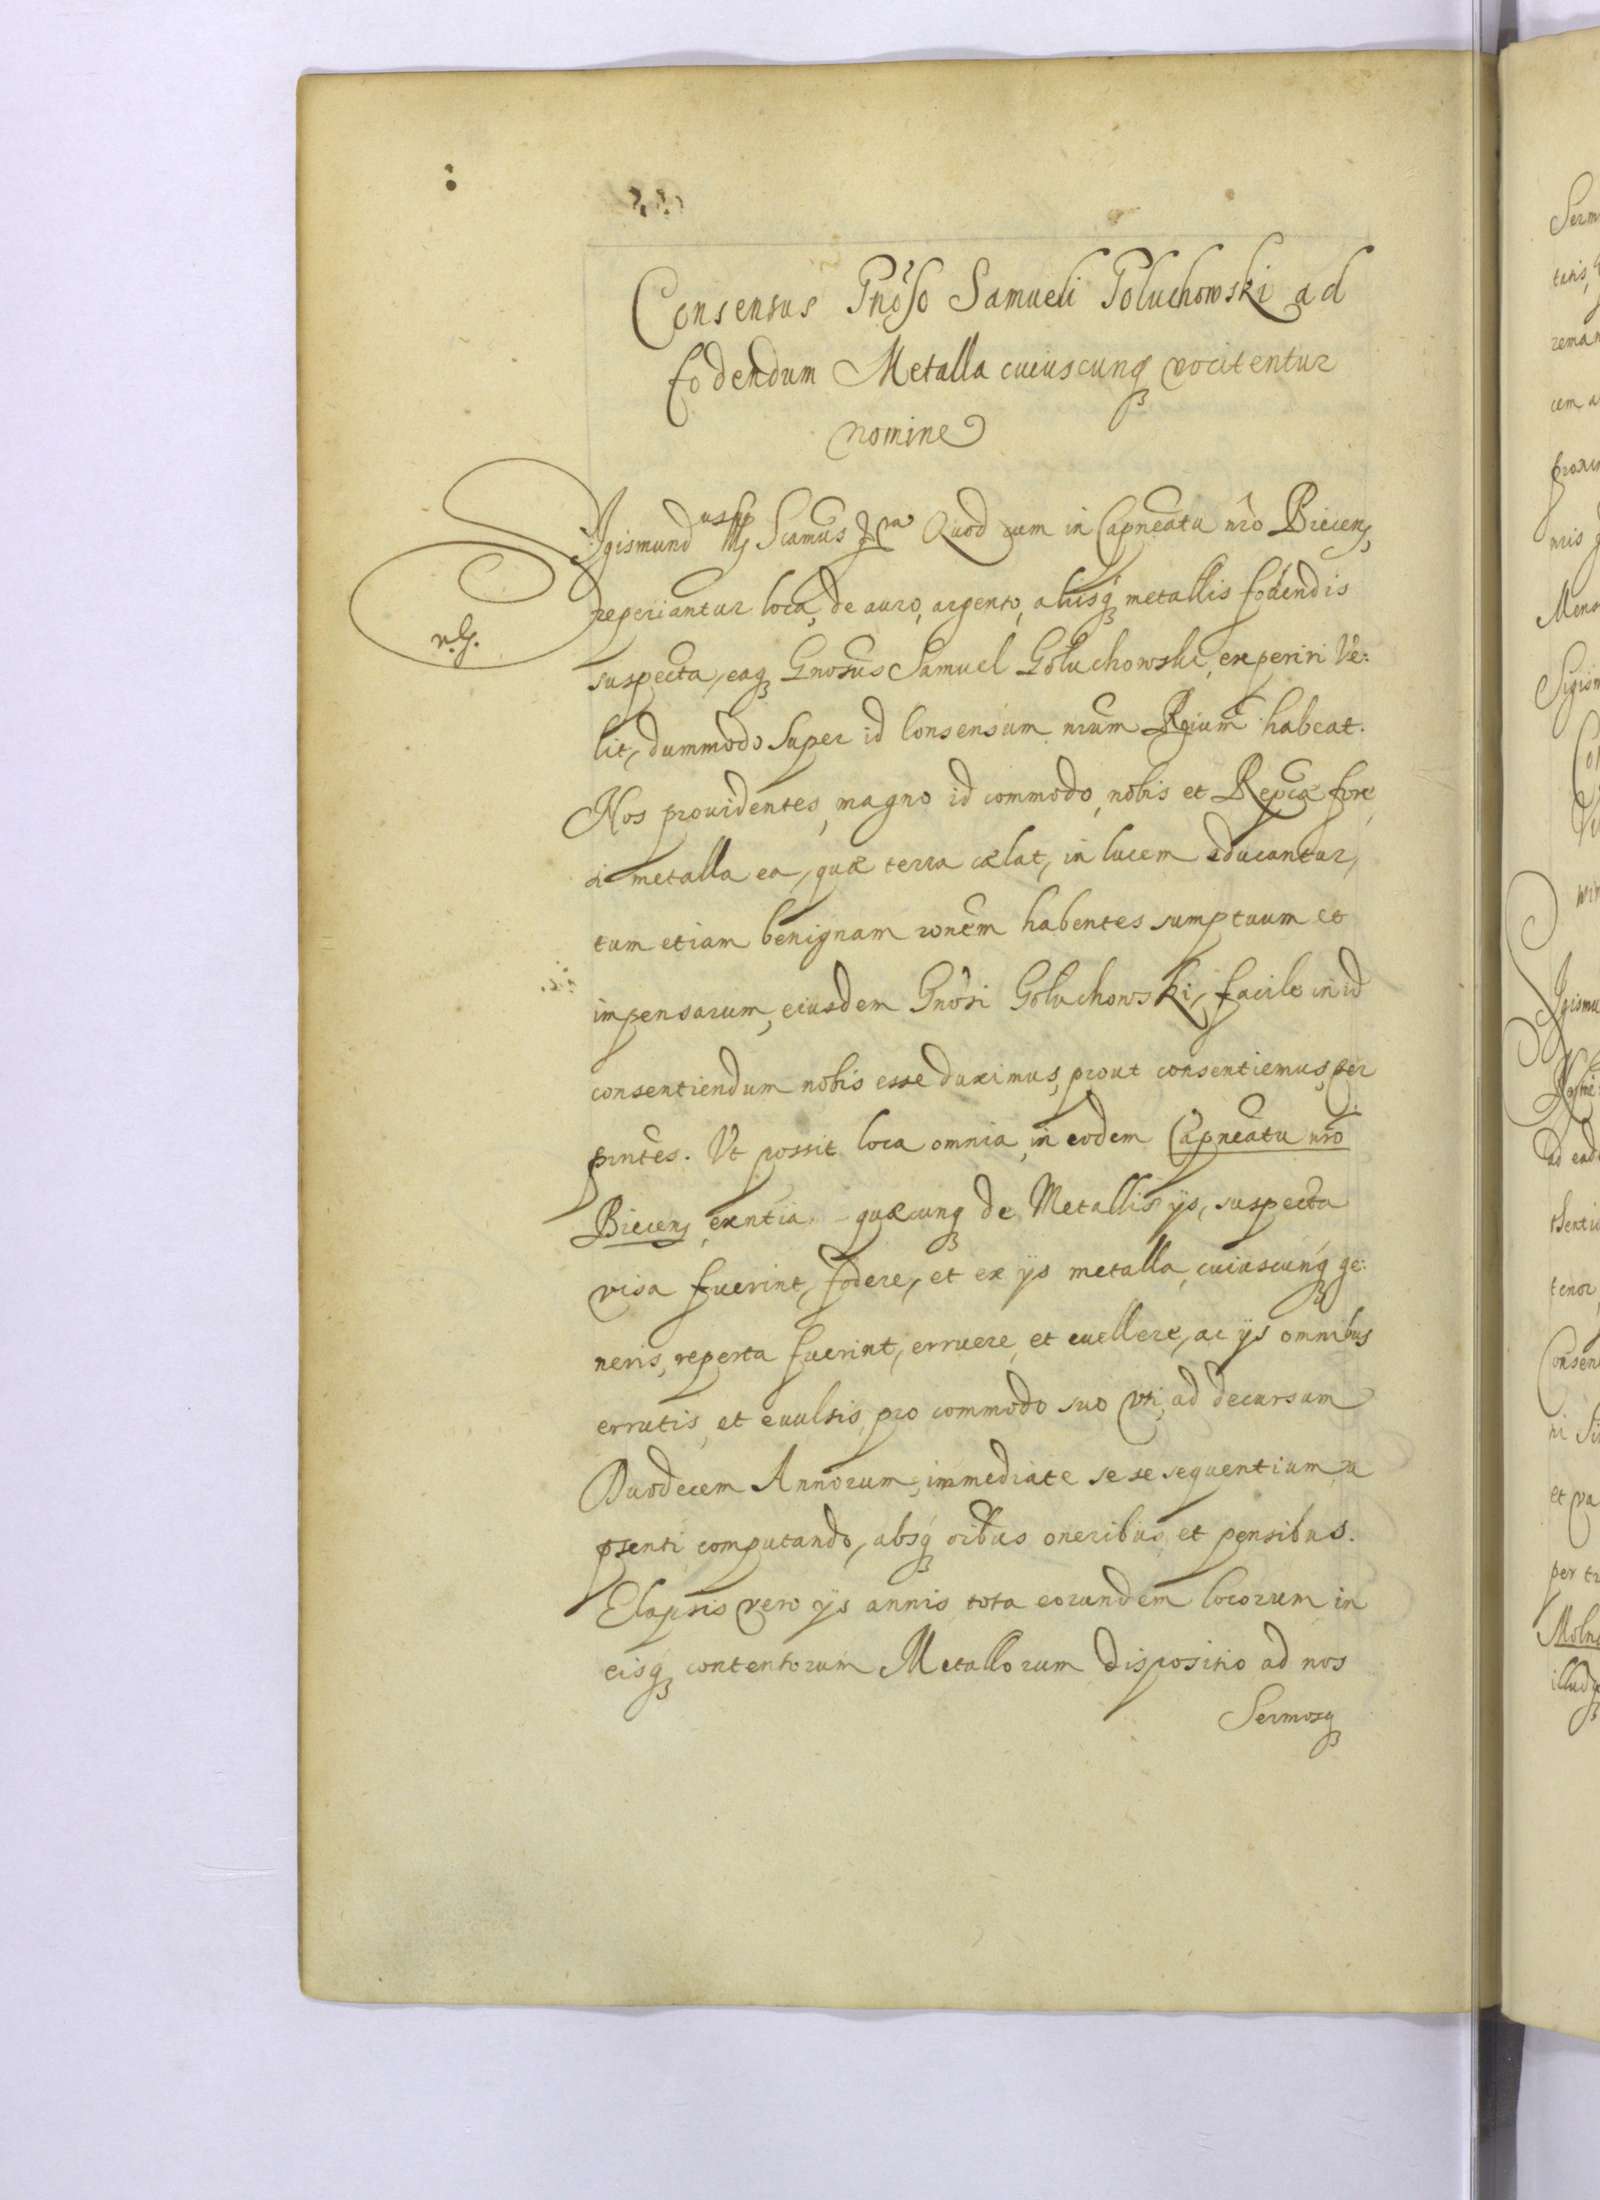 Consensus Gnōso Samueli Goluchowski ad
fodendum Metalla cuiuscunq vocitentur
nomine
Sigismundus Scamus Quod cum in Capneatu nro Biecen,
reperiantur loca, de auro, argento, alijsq metallis fodendis
suspecta, eaq Gnosus Samuel Goluchowski, experiri Ve:
lit, dummodo super id Consensum nrum Regium habeat.
Nos prouidentes, magno id commodo, nobis et Reipcæ fore,
si metalla ea, quæ terra cælat, in lucem educantur,
tum etiam benignam rōnem habentes sumptuum et
impensarum, eiusdem Gnosi Goluchowski, facile in id
consentiendum nobis esse duximus, prout consentiemus, per
pntes. Vt possit loca omnia, in eodem Capneatu nro
Biecen, exntia quæcunq de Metallis ijs, suspecta
visa fuerint, fodere, et ex ijs metalla, cuiuscunq ge:
neris, reperta fuerint, erruere, et euellere, ac ijs omnibus
errutis, et euulsis, pro commodo suo vti, ad decursum
Duodecem Annorum, immediate se se sequentium, a
psenti computando, absq oibus oneribus, et pensibus.
Elapsis vero ijs annis, tota eorundem locorum, in
eisq contentorum Metallorum dispositio ad nos
Sermosq